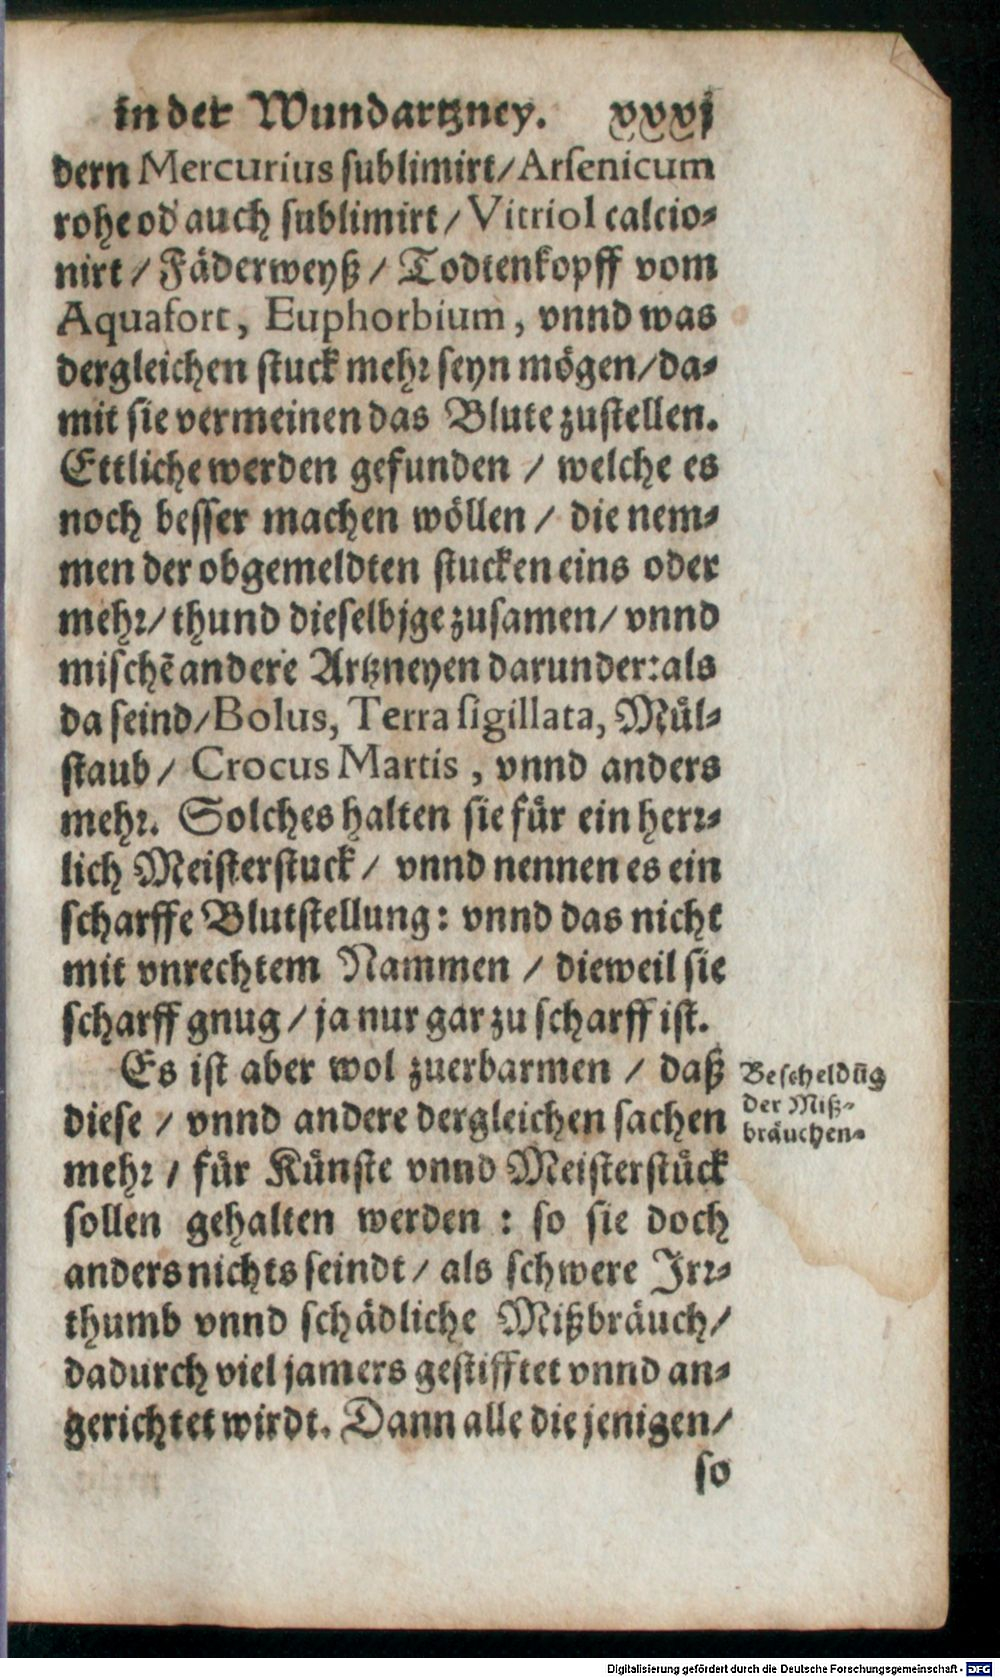 in der Wundartzney. xxxj
dern Mercurius sublimirt/Arsenicum
rohe od' auch sublimirt/Vitriol calcio-
nirt/Fäderweyß/Todtenkopff vom
Aquafort, Euphorbium, vnnd was
dergleichen stuck mehr seyn mögen/da-
mit sie vermeinen das Blute zustellen.
Ettliche werden gefunden/welche es
noch besser machen wöllen/die nem-
men der obgemeldten stucken eins oder
mehr/thund dieselbige zusamen/vnnd
mischẽ andere Artzneyen darunder: als
da seind/Bolus, Terra sigillata, Mül-
staub/Crocus Martis, vnnd anders
mehr. Solches halten sie für ein herr-
lich Meisterstuck/vnnd nennen es ein
scharffe Blutstellung: vnnd das nicht
mit vnrechtem Nammen/dieweil sie
scharff gnug/ja nur gar zu scharff ist.
Es ist aber wol zuerbarmen/daß
diese/vnnd andere dergleichen sachen
mehr/für Künste vnnd Meisterstück
sollen gehalten werden: so sie doch
anders nichts seindt/als schwere Irr-
thumb vnnd schädliche Mißbräuch/
dadurch viel jamers gestifftet vnnd an-
gerichtet wirdt. Dann alle die jenigen/
so
Bescheldũg
der Miß-
bräuchen.
Digitalisierung gefördert durch die Deutsche Forschungsgemeinschaft - DFG